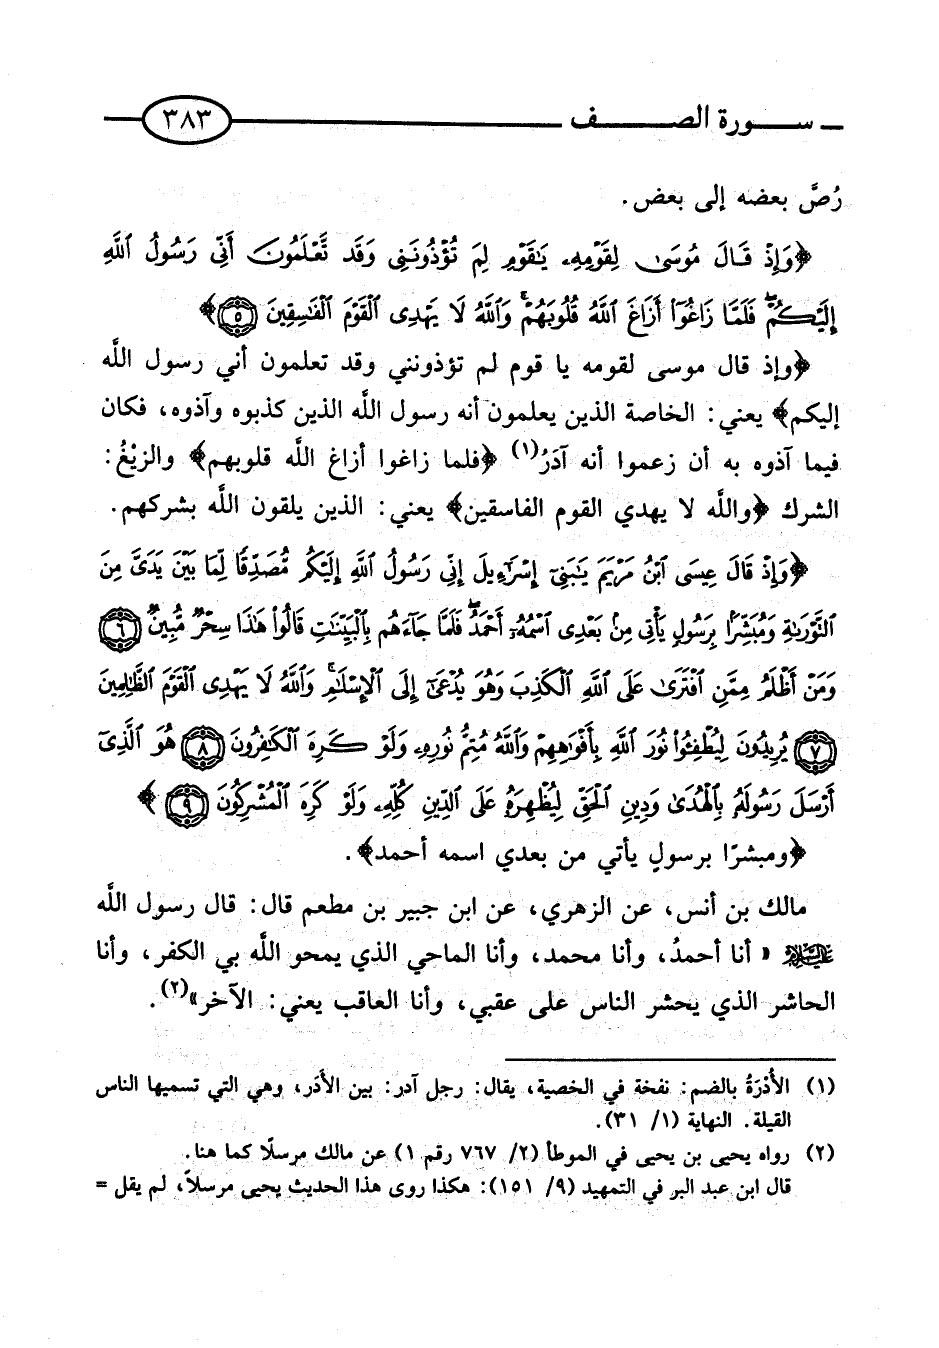 سورة الصف ٣٨٣
رُصَّ بعضه إلى بعض.
﴿وَإِذْ قَالَ مُوسَىٰ لِقَوْمِهِۦ يَٰقَوْمِ لِمَ تُؤْذُونَنِى وَقَد تَّعْلَمُونَ أَنِّى رَسُولُ ٱللَّهِ
إِلَيْكُمْ ۖ فَلَمَّا زَاغُوٓا۟ أَزَاغَ ٱللَّهُ قُلُوبَهُمْ ۚ وَٱللَّهُ لَا يَهْدِى ٱلْقَوْمَ ٱلْفَٰسِقِينَ ٥﴾
﴿وإذ قال موسى لقومه يا قوم لم تؤذونني وقد تعلمون أني رسول اللَّه
إليكم﴾ يعني: الخاصة الذين يعلمون أنه رسول اللَّه الذين كذبوه وآذوه، فكان
فيما آذوه به أن زعموا أنه آدَرُ(١) ﴿فلما زاغوا أزاغ اللَّه قلوبهم﴾ والزيْغُ:
الشرك ﴿واللَّه لا يهدي القوم الفاسقين﴾ يعني: الذين يلقون اللَّه بشركهم.
﴿وَإِذْ قَالَ عِيسَى ٱبْنُ مَرْيَمَ يَٰبَنِىٓ إِسْرَٰٓءِيلَ إِنِّى رَسُولُ ٱللَّهِ إِلَيْكُم مُّصَدِّقًا لِّمَا بَيْنَ يَدَىَّ مِنَ
ٱلتَّوْرَىٰةِ وَمُبَشِّرًۢا بِرَسُولٍ يَأْتِى مِنۢ بَعْدِى ٱسْمُهُۥٓ أَحْمَدُ ۖ فَلَمَّا جَآءَهُم بِٱلْبَيِّنَٰتِ قَالُوا۟ هَٰذَا سِحْرٌ مُّبِينٌ ٦
وَمَنْ أَظْلَمُ مِمَّنِ ٱفْتَرَىٰ عَلَى ٱللَّهِ ٱلْكَذِبَ وَهُوَ يُدْعَىٰٓ إِلَى ٱلْإِسْلَٰمِ ۚ وَٱللَّهُ لَا يَهْدِى ٱلْقَوْمَ ٱلظَّٰلِمِينَ
٧ يُرِيدُونَ لِيُطْفِـُٔوا۟ نُورَ ٱللَّهِ بِأَفْوَٰهِهِمْ وَٱللَّهُ مُتِمُّ نُورِهِۦ وَلَوْ كَرِهَ ٱلْكَٰفِرُونَ ٨ هُوَ ٱلَّذِىٓ
أَرْسَلَ رَسُولَهُۥ بِٱلْهُدَىٰ وَدِينِ ٱلْحَقِّ لِيُظْهِرَهُۥ عَلَى ٱلدِّينِ كُلِّهِۦ وَلَوْ كَرِهَ ٱلْمُشْرِكُونَ ٩﴾
﴿ومبشرًا برسولٍ يأتي من بعدي اسمه أحمد﴾.
مالك بن أنس، عن الزهري، عن ابن جبير بن مطعم قال: قال رسول اللَّه
ﷺ «أنا أحمدُ، وأنا محمد، وأنا الماحي الذي يمحو اللَّه بي الكفر، وأنا
الحاشر الذي يحشر الناس على عقبي، وأنا العاقب يعني: الآخر»(٢).
(١) الأُدْرَةُ بالضم: نفخة في الخصية، يقال: رجل آدر: بين الأَدَر، وهي التي تسميها الناس
القيلة. النهاية (١/ ٣١).
(٢) رواه يحيى بن يحيى في الموطأ (٢/ ٧٦٧ رقم ١) عن مالك مرسلًا كما هنا.
قال ابن عبد البر في التمهيد (٩/ ١٥١): هكذا روى هذا الحديث يحيى مرسلاً، لم يقل =